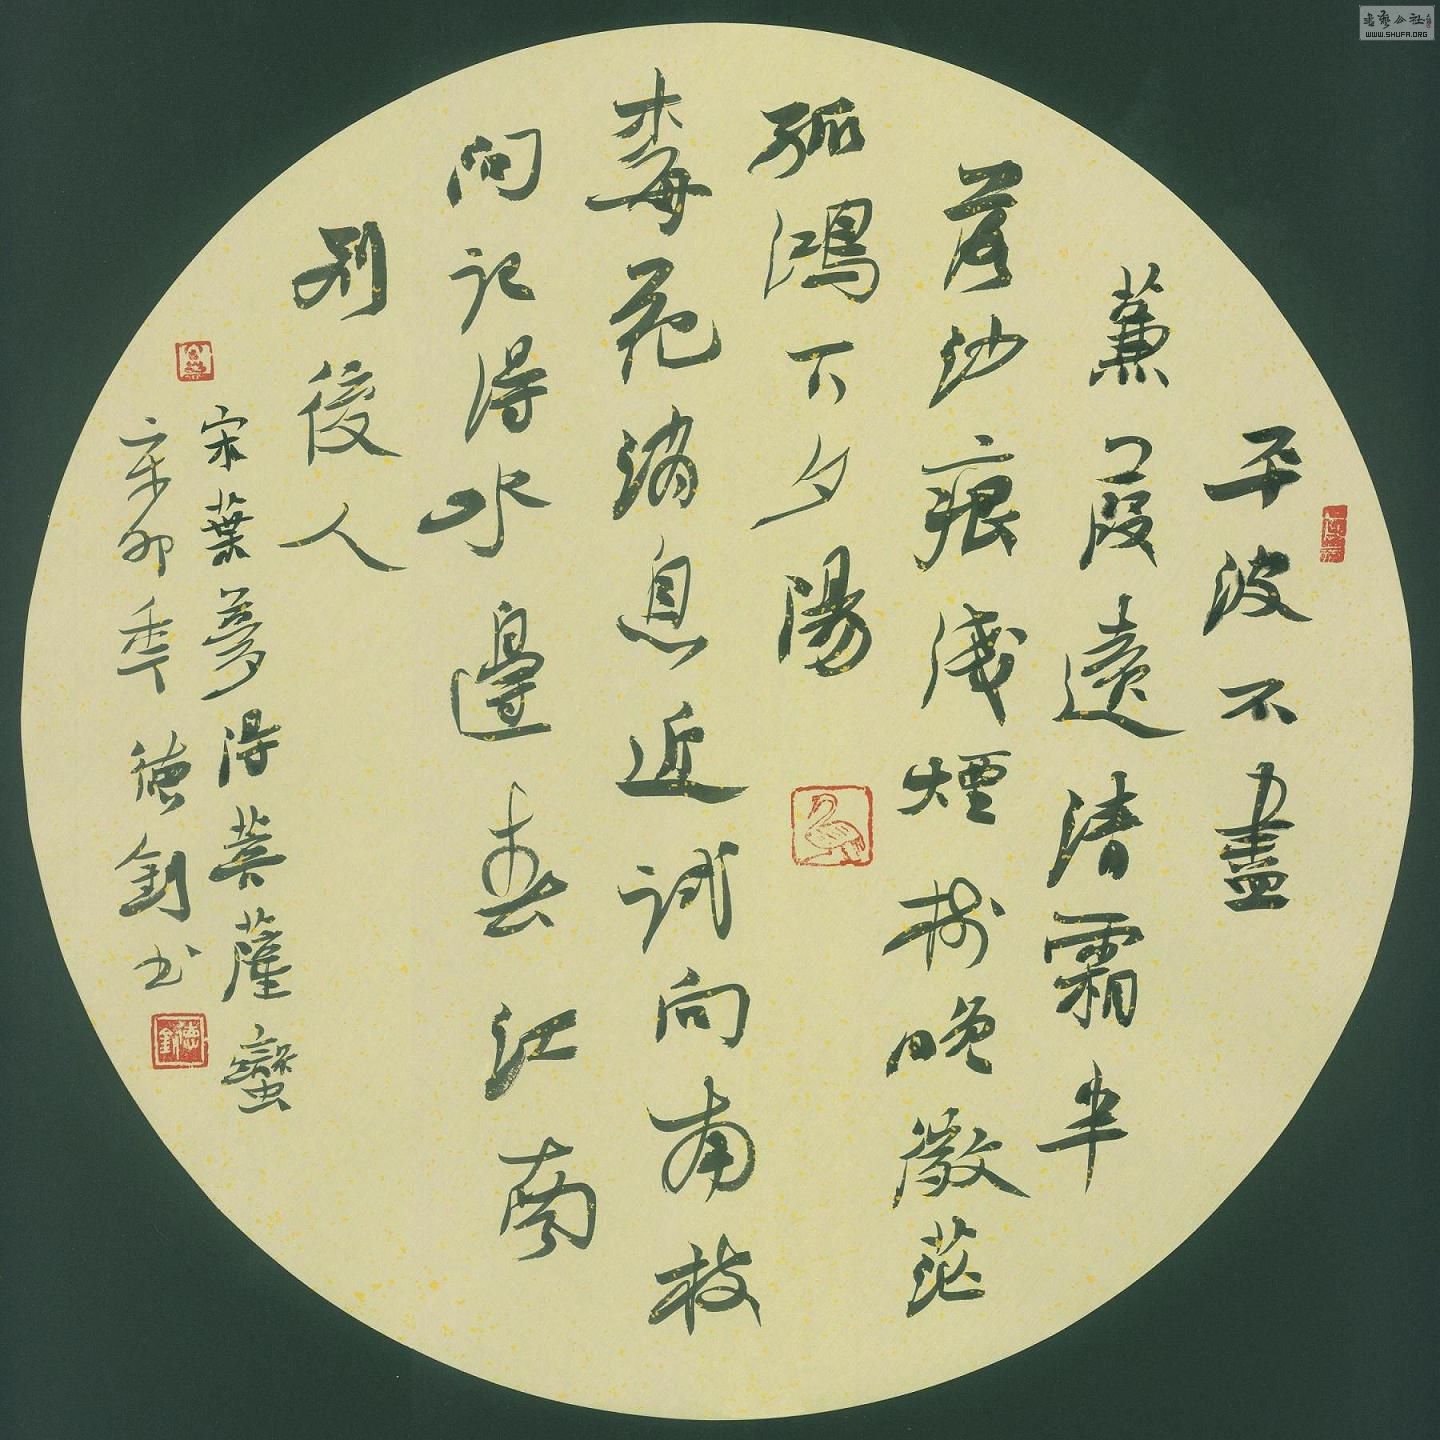 平波不盡
蒹葭遠清霜半
落沙痕淺煙樹晚微茫
孤鴻下夕陽
梅花消息近試向南枝
問記得水邊春江南
別後人
宋葉夢得菩薩蠻
辛卯年德釗書
德釗
書藝公社
WWW.SHUFA.ORG